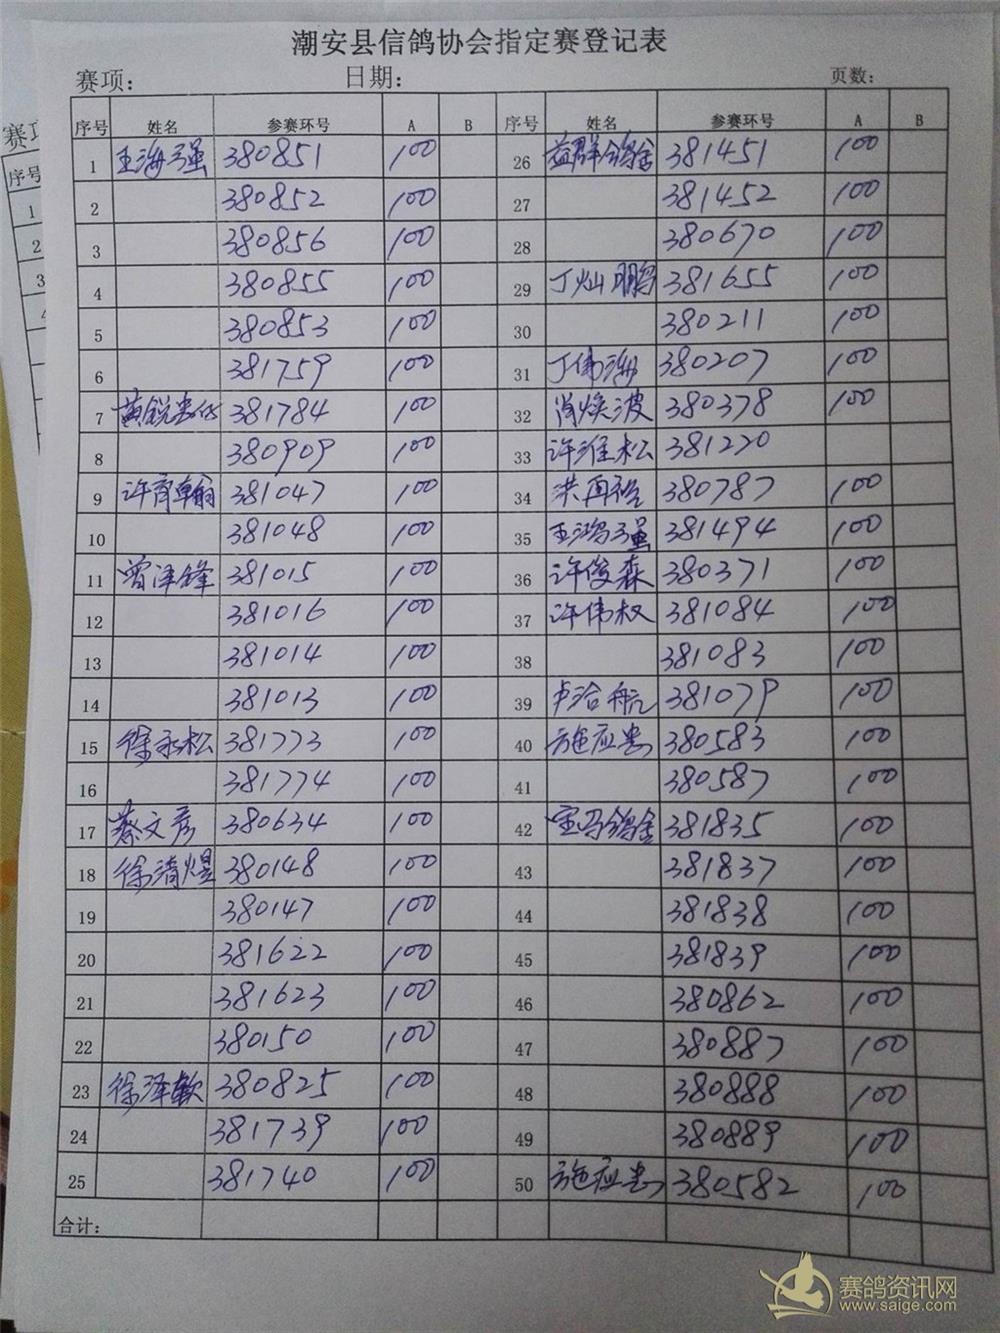 潮安县信鸽协会指定赛登记表
赛项： 日期： 页数：
序号 姓名 参赛环号 A B 序号 姓名 参赛环号 A B
1 王海强 380851 100 26 益群鸽舍 381451 100
2 380852 100 27 381452 100
3 380856 100 28 380670 100
4 380855 100 29 丁灿鹏 381655 100
5 380853 100 30 380211 100
6 381759 100 31 丁伟海 380207 100
7 黄锐 381784 100 32 肖焕波 380378 100
8 380909 100 33 许维松 381220
9 许育翰 381047 100 34 洪再 380787 100
10 381048 100 35 王鸿强 381494 100
11 曾泽锋 381015 100 36 许俊森 380371 100
12 381016 100 37 许伟权 381084 100
13 381014 100 38 381083 100
14 381013 100 39 卢治航 381079 100
15 徐永松 381773 100 40 施应忠 380583 100
16 381774 100 41 380587 100
17 蔡文彦 380634 100 42 宝马鸽舍 381835 100
18 徐清煜 380148 100 43 381837 100
19 380147 100 44 381838 100
20 381622 100 45 381839 100
21 381623 100 46 380862 100
22 380150 100 47 380887 100
23 徐泽敏 380825 100 48 380888 100
24 381739 100 49 380889 100
25 381740 100 50 施应忠 380582 100
合计：
赛项
序号
1
2
3
4
赛鸽资讯网
www.saige.com